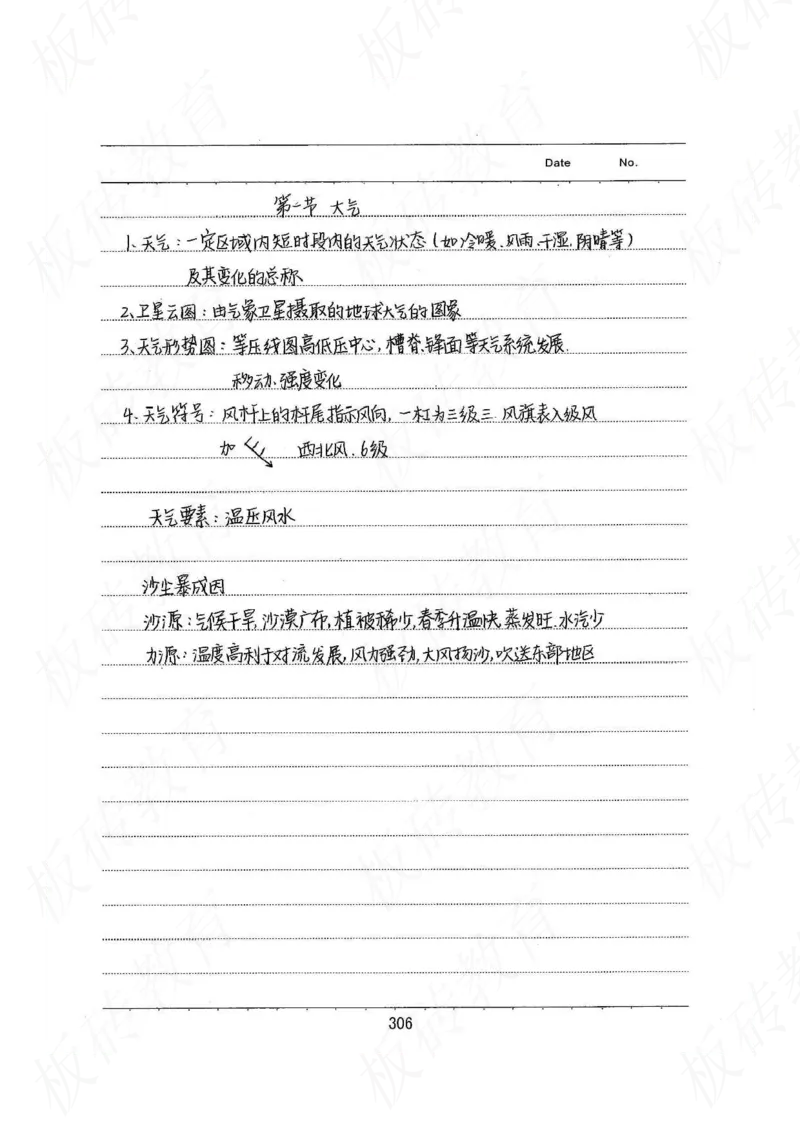 Date No.
第一节 大气
1、天气：一定区域内短时段内的天气状态（如冷暖、风雨、干湿、阴晴等）
及其变化的总称
2、卫星云图：由气象卫星摄取的地球大气的图象
3、天气形势图：等压线图高低压中心，槽脊、锋面等天气系统发展、
移动、强度变化
4、天气符号：风杆上的杆尾指示风向，一杠为三级三 风旗表入级风
加 西北风、6级
天气要素：温压风水
沙尘暴成因
沙源：气候干旱，沙漠广布，植被稀少，春季升温快，蒸发旺 水汽少
力源：温度高利于对流发展，风力强劲，大风扬沙，吹送东部地区
306
板砖教育